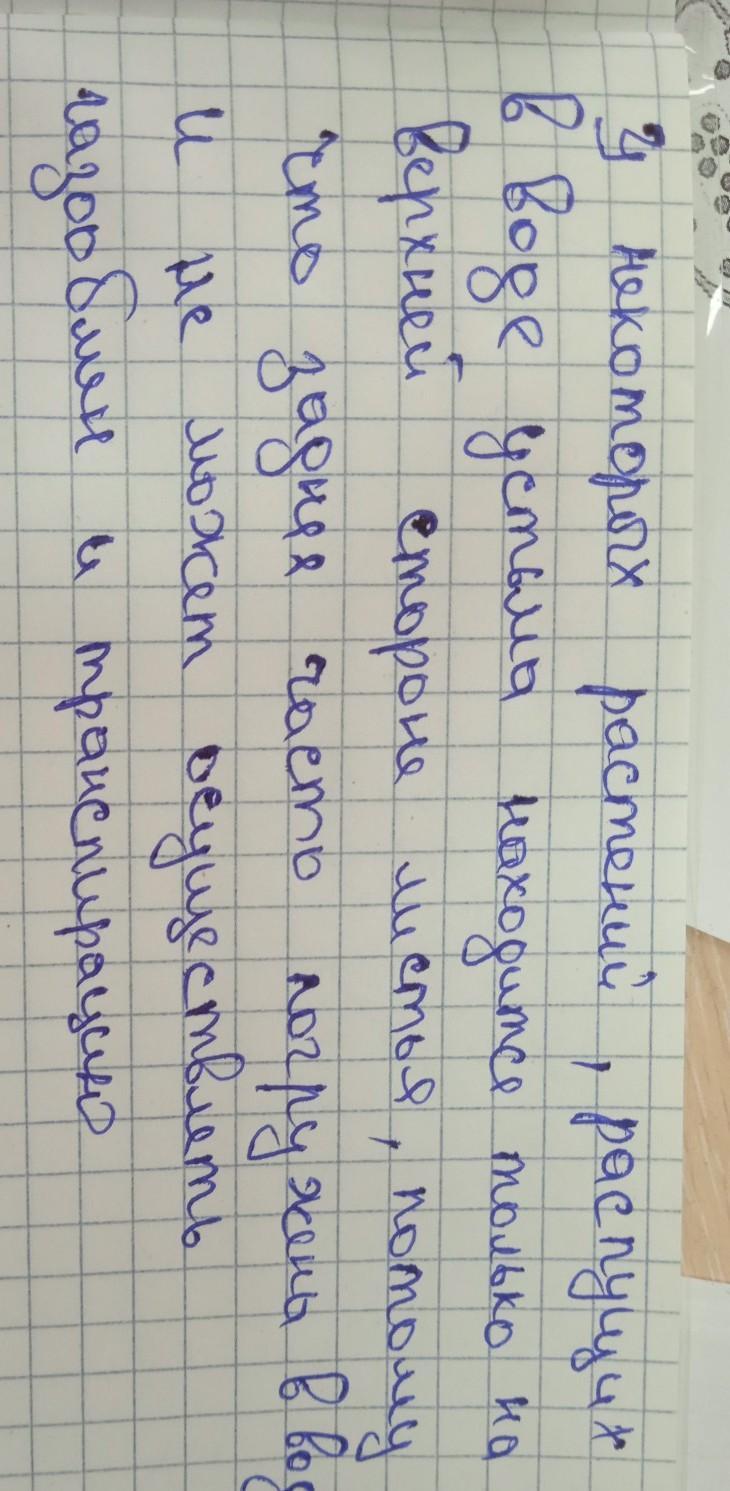 У некоторых растений, распущих
в воде устьма находится только на
верхней стороне листья, потому
что задняя часть погружены в вод
и не может осуществлять
газообмен и транспирацию